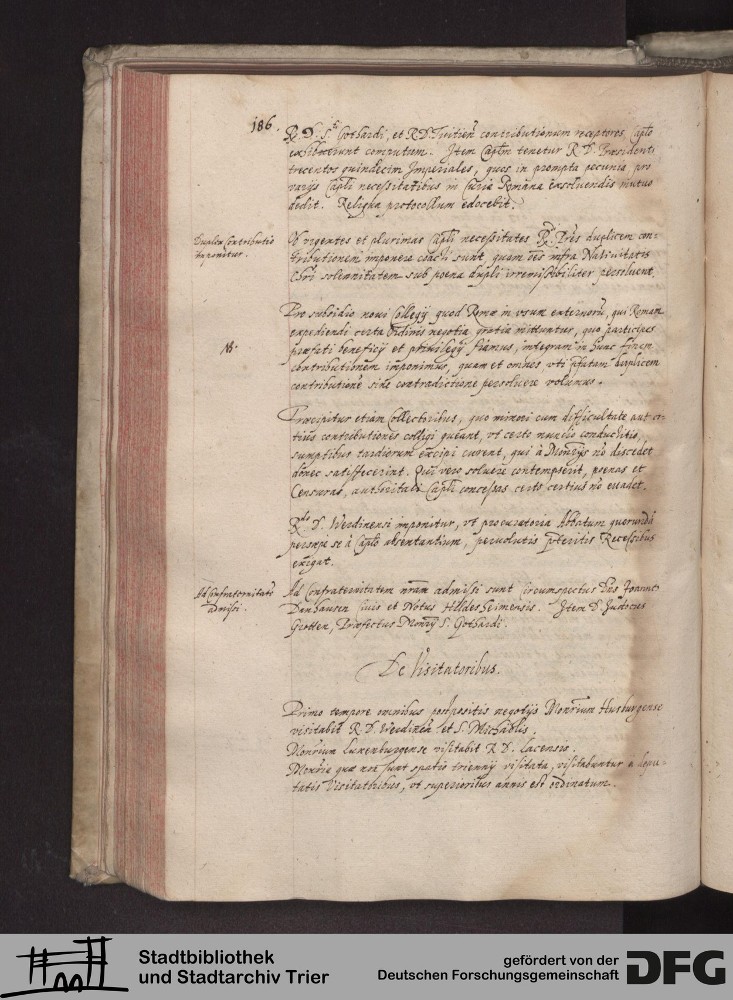 186.
R. D. S. Gothardi, et R D. Tuitien contributionum receptores Caplo
exhibuerunt computum. Item Caplm tenetur R D. Præsidenti
trecentos quindecim Imperiales, quos in prompta pecunia pro
varijs Capli necessitatibus in Curia Romana exsoluendis mutuo
dedit. Reliqua protocollum edocebit.
Duplex Contributio
imponitur.
Ob vrgentes et plurimas Capli necessitates R. Pres duplicem con-
tributionem imponere coacti sunt, quam oes infra Natiuitatis
Chri solemnitatem sub poena dupli irremissibiliter persoluent.
NB.
Pro subsidio noui Collegij quod Romæ in vsum externorū, qui Romam
expediendi certa Ordinis negotia gratia mittuntur, quo participes
præfati beneficij et priuilegij fiamus, integram in hunc finem
contributionem imponimus, quam et omnes vti pfatam duplicem
contributionē sine contradictione persoluere volumus.
Præcipitur etiam Collectoribus, quo minori cum difficultate aut cer-
tius contributiones colligi queant, vt certo nuncio conductitio,
sumptibus tardiorum excipi curent, qui à Monrijs nō discedet
donec satisfecerint. Qui vero soluere contempserit, poenas et
Censuras, authoritati Capli concessas certo certius nō euadet.
Rdo D. Werdinensi imponitur, vt procuratoria Abbatum quorundā
persæpe se à Caplo absentantium, peruolutis pteritis Recessibus
exigat.
Ad Confraternitatē
admissi.
Ad Confraternitatem nram admissi sunt circumspectus Dns Joannes
Danhausen Ciuis et Notus Hildesheimensis. Item D. Judocus
Grotten, Præfectus Monrij S. Gothardi.
De Visitatoribus.
Primo tempore omnibus postpositis negotijs Monrium Husburgense
visitabit R. D. Werdinen et S. Michaelis.
Monrium Luxenburgense visitabit R D. Lacensis.
Monria quæ non sunt spatio triennij visitata, visitabuntur a depu-
tatis Visitatoribus, vt superioribus annis est ordinatum.
Stadtbibliothek
und Stadtarchiv Trier
gefördert von der
Deutschen Forschungsgemeinschaft
DFG